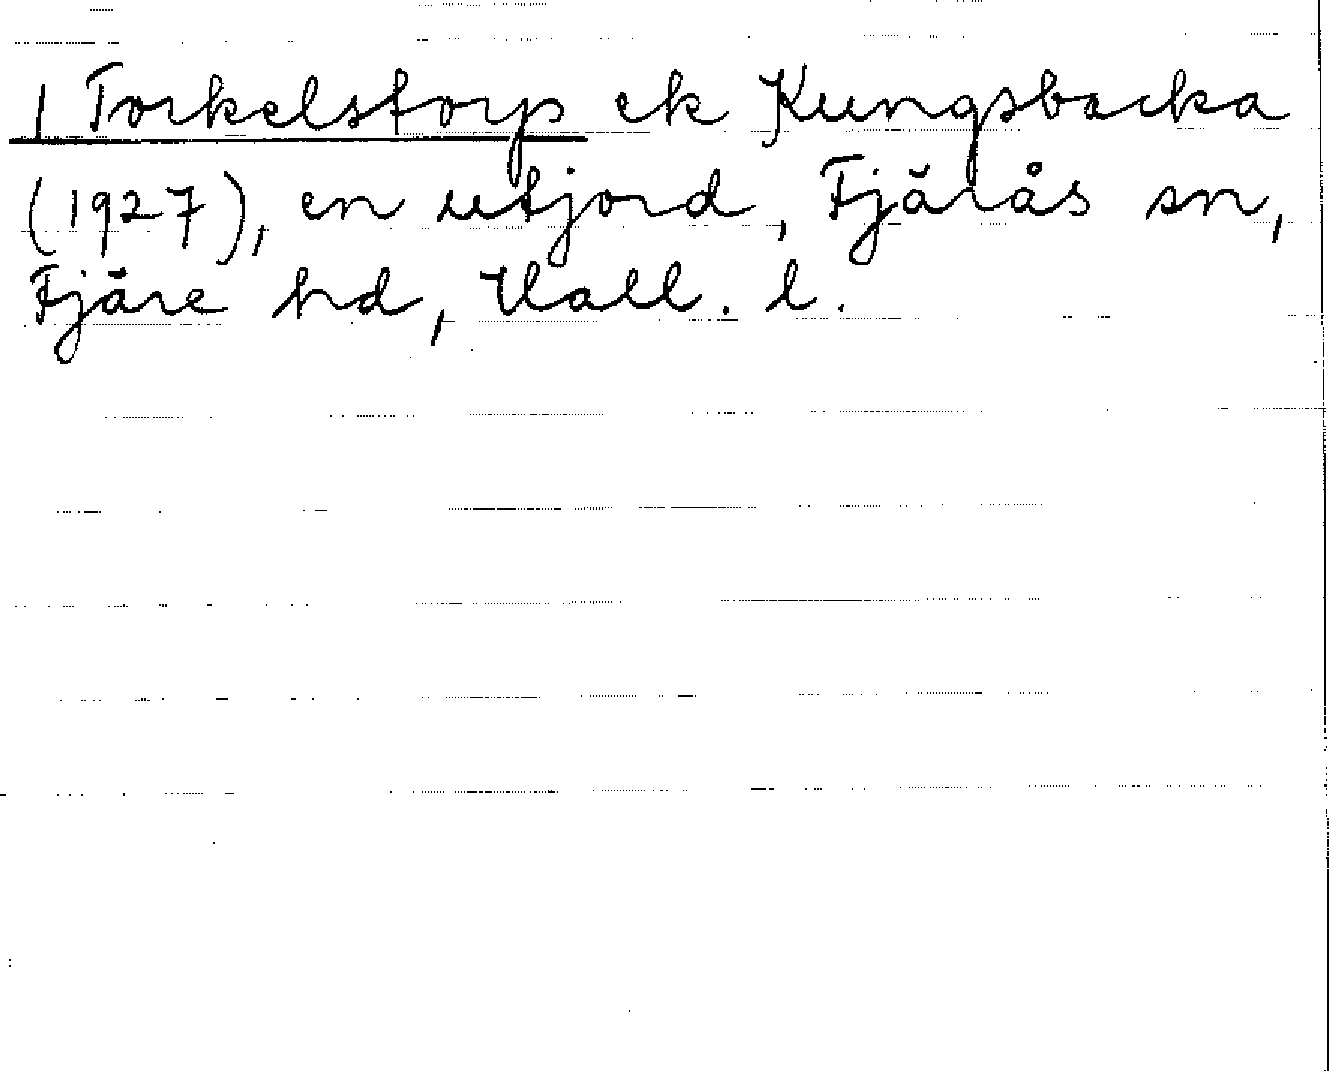 1 Torkelstorp ek Kungsbacka
(1927), en utjord, Fjärås sn,
Fjäre hd, Hall. l.